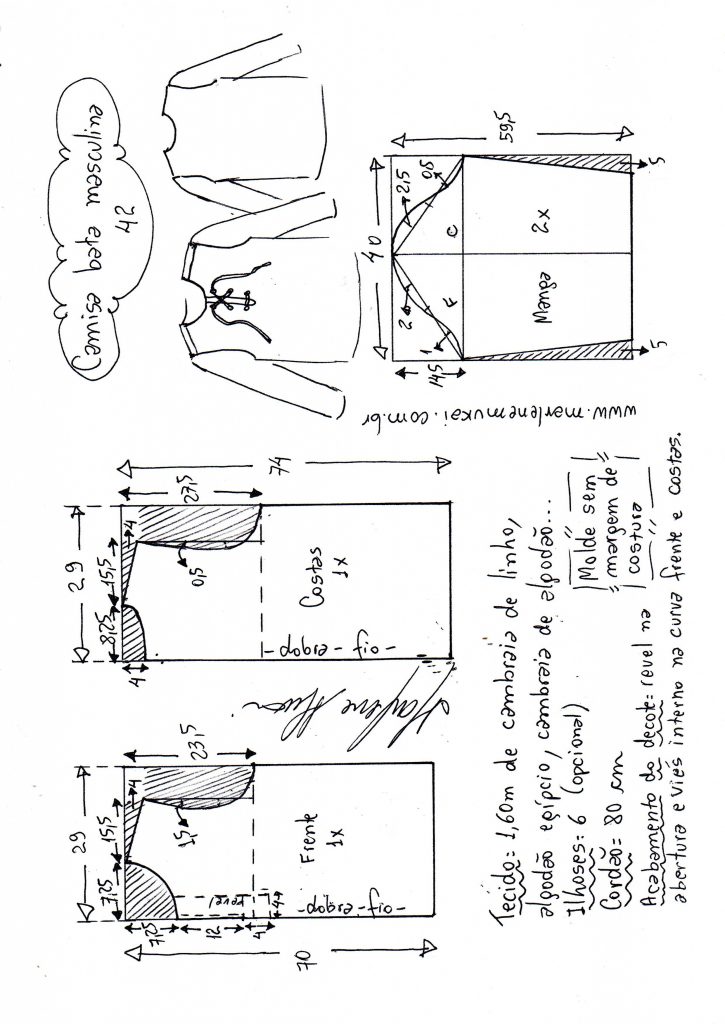 Camisa bata masculina
42
29
7,25
15,5
4
23,5
7,25
12
4
4
70
1,5
revel
Frente
1x
-fio-esgap-
29
8,25
15,5
4
27,5
4
74
0,5
Costas
1x
-fio-esgap-
www.marlenemukai.com.br
40
59,5
14,5
2
1
F
C
2,5
0,8
Manga
2x
5
5
Tecido: 1,60m de cambraia de linho,
algodão egípcio, cambraia de algodão...
Ilhoses: 6 (opcional)
Cordão: 80 cm
Acabamento do decote: revel na
abertura e viés interno na curva frente e costas.
Molde sem
margem de
costura